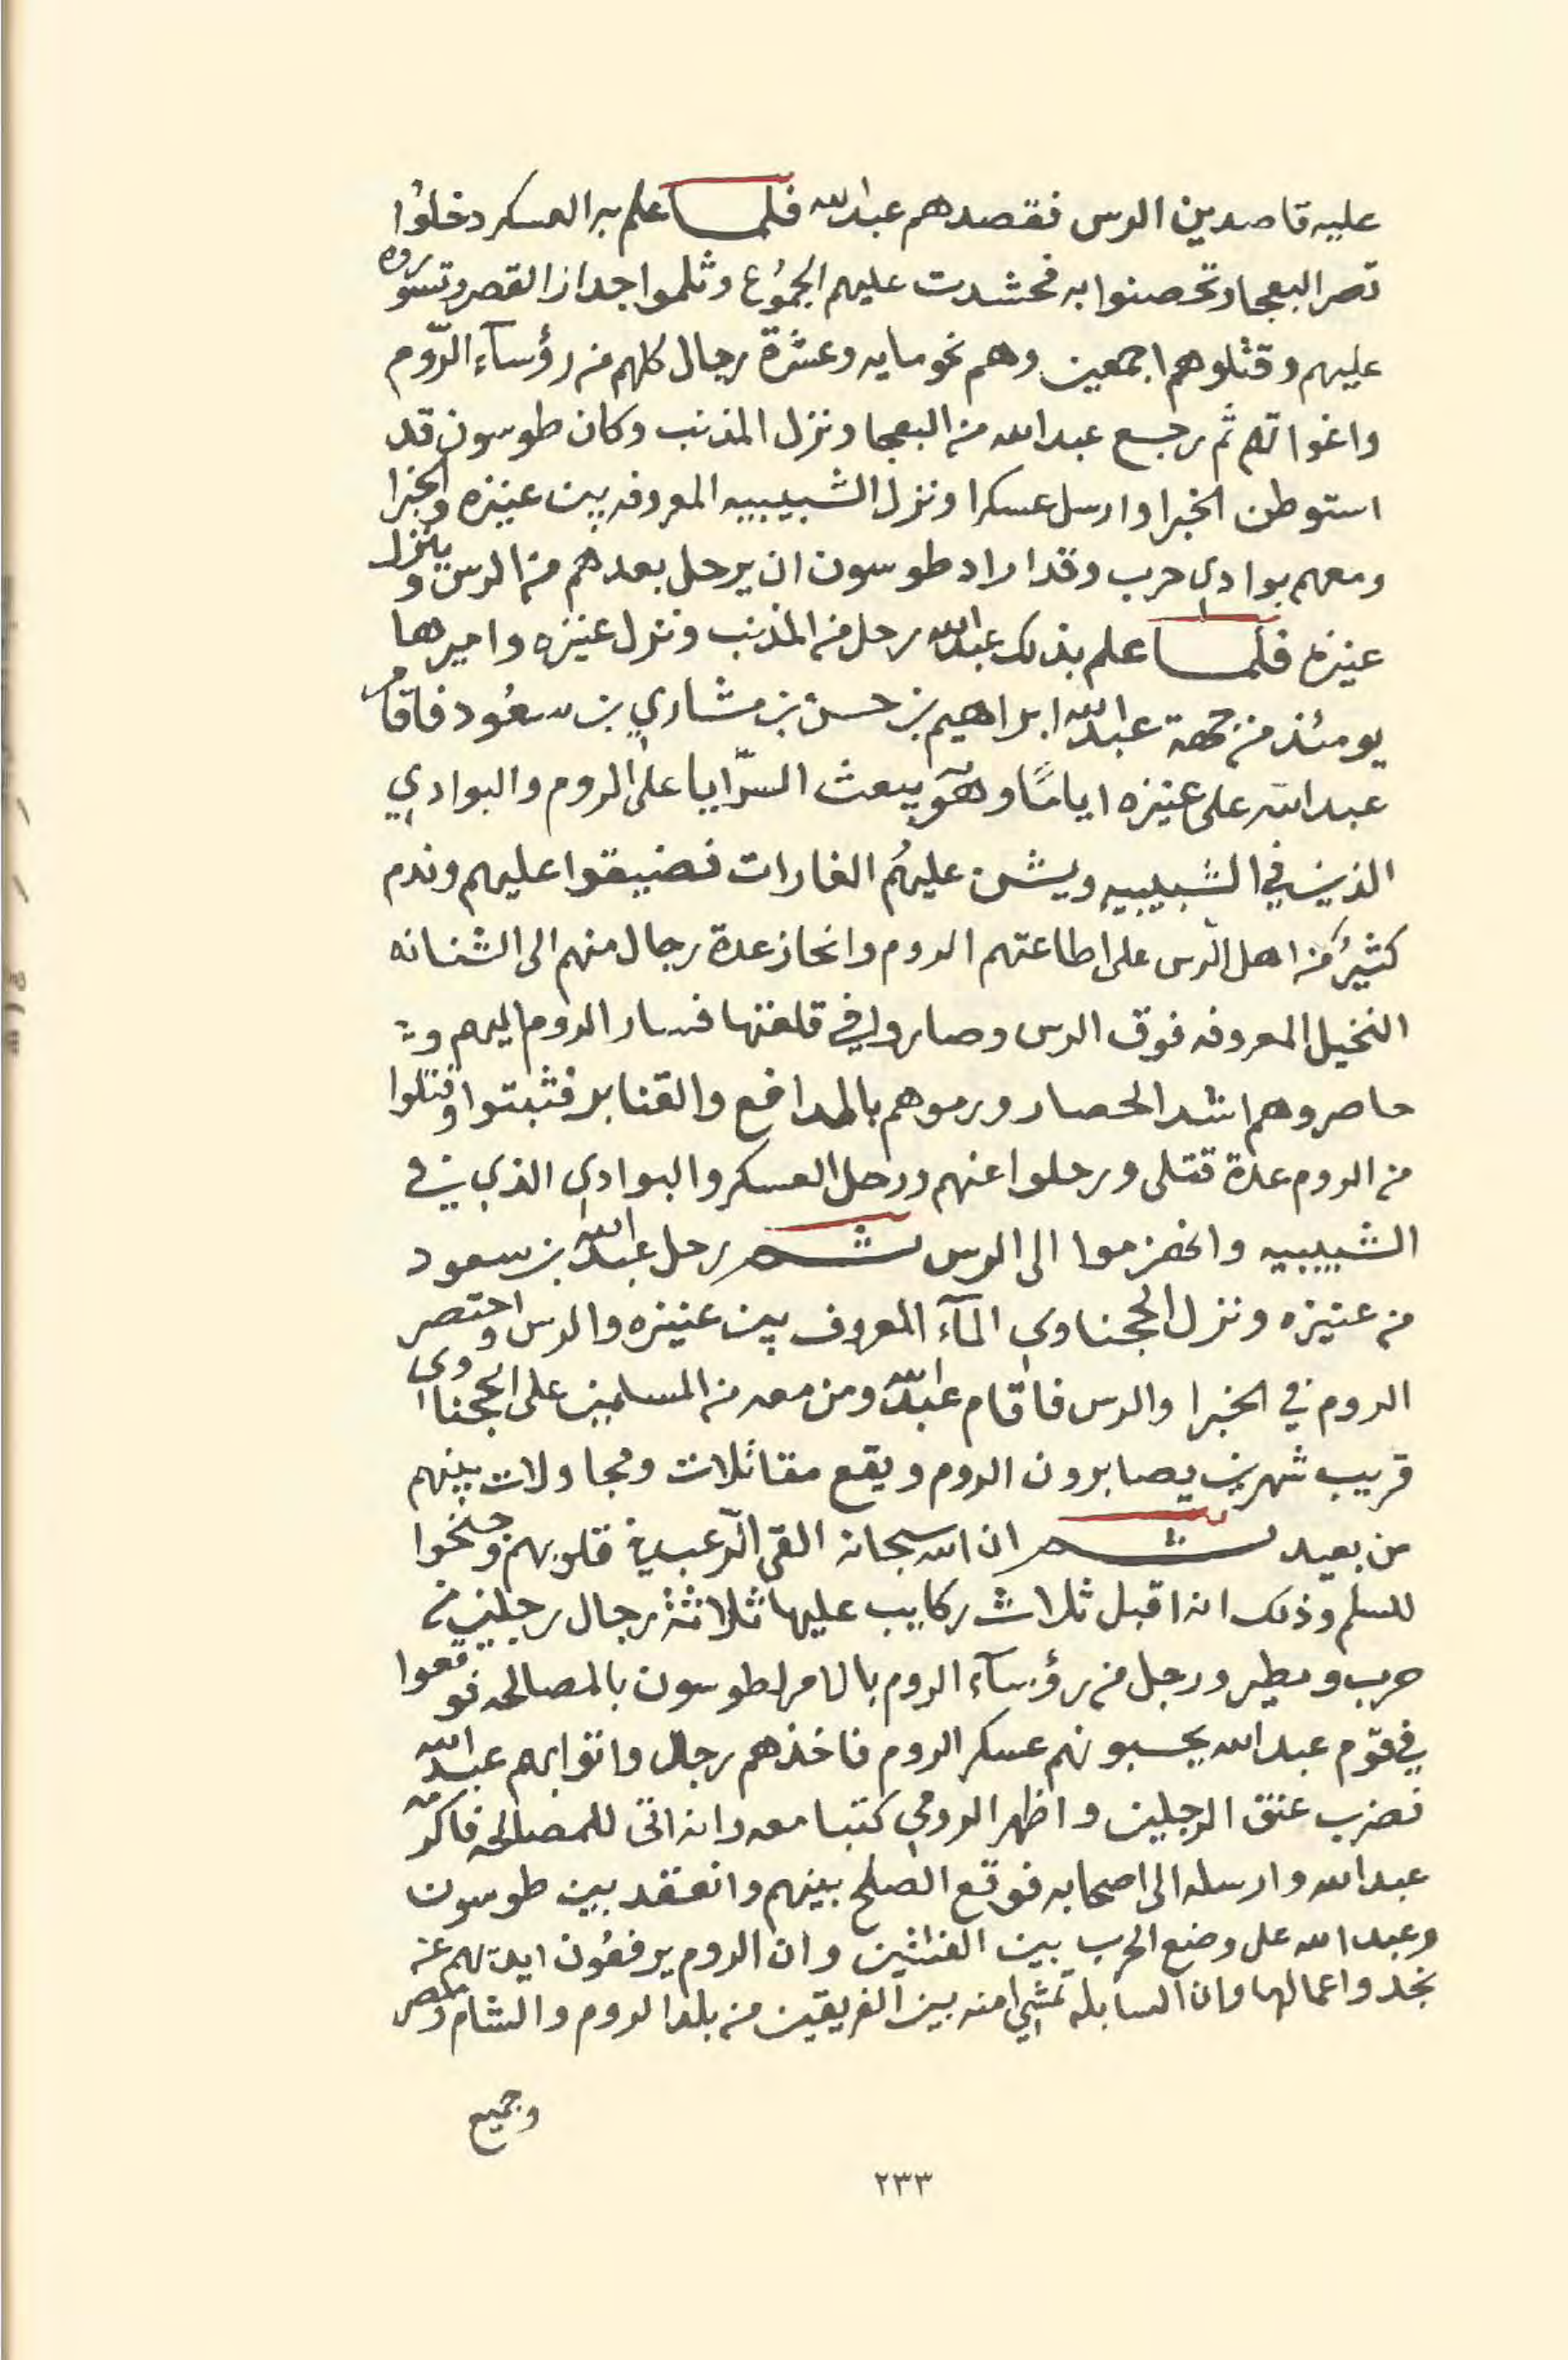 عليه قاصدين الرس فقصدهم عبدالله فلما علم به العسكر دخلوا
قصر البعجا وتحصنوا به فحشدت عليهم الجموع وثلموا جدار القصر وتسوروه
عليهم وقتلوهم اجمعين وهم نحو مايه وعشرة رجال كلهم من رؤسآء الروم
واغواتهم ثم رجع عبدالله من البعجا ونزل المذنب وكان طوسون قد
استوطن الخبرا وارسل عسكرا ونزل الشبيبيه المعروفه بين عنيزه والخبرا
ومعهم بوادي حرب وقد اراد طوسون ان يرحل بعدهم من الرس وينزل
عنيزه فلما علم بذلك عبدالله رحل من المذنب ونزل عنيزه واميرها
يومئذ من جهة عبدالله ابراهيم بن حسن بن مشاري بن سعود فاقام
عبدالله على عنيزه اياما وهو يبعث السرايا على الروم والبوادي
الذين في الشبيبيه ويشن عليهم الغارات فضيقوا عليهم وندم
كثير من اهل الرس على اطاعتهم الروم وانحاز عدة رجال منهم الى الشنانه
النخيل المعروفه فوق الرس وصاروا في قلعتها فسار الروم اليهم و
حاصروهم اشد الحصار ورموهم بالمدافع والقنابر فثبتوا وقتلوا
من الروم عدة قتلى ورحلوا عنهم ورحل العسكر والبوادي الذي في
الشبيبيه وانهزموا الى الرس ثم رحل عبدالله بن سعود
من عنيزه ونزل الحجناوي المآء المعروف بين عنيزه والرس واحتصر
الروم في الخبرا والرس فاقام عبدالله ومن معه من المسلمين على الحجناوى
قريب شهرين يصابرون الروم ويقع مقاتلات ومجاولات بينهم
من بعيد ثم ان الله سبحانه القى الرعب في قلوبهم وجنحوا
للسلم وذلك انه اقبل ثلاث ركايب عليها ثلاثة رجال رجلين من
حرب ومطير ورجل من رؤسآء الروم بالامر لطوسون بالمصالحه فوقعوا
في قوم عبدالله يحسبونهم عسكر الروم فاخذهم رجال واتوا بهم عبدالله
فضرب عنق الرجلين واظهر الرومي كتبا معه وانه اتى للمصالحه فاكرمه
عبدالله وارسله الى اصحابه فوقع الصلح بينهم وانعقد بين طوسون
وعبدالله على وضع الحرب بين الفئتين وان الروم يرفعون ايديهم عن
نجد واعمالها وان السابله تمشي امنه بين الفريقين من بلد الروم والشام ومصر
وجميع
٢٣٣